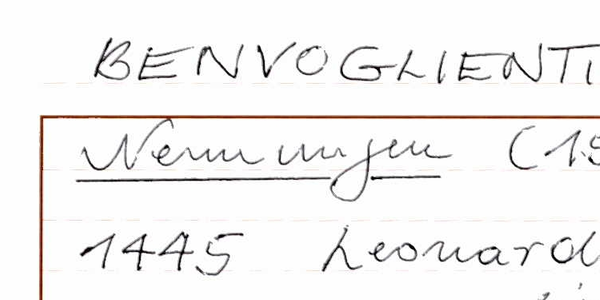 BENVOGLIENTI
Nennungen (1
1445 Leonard